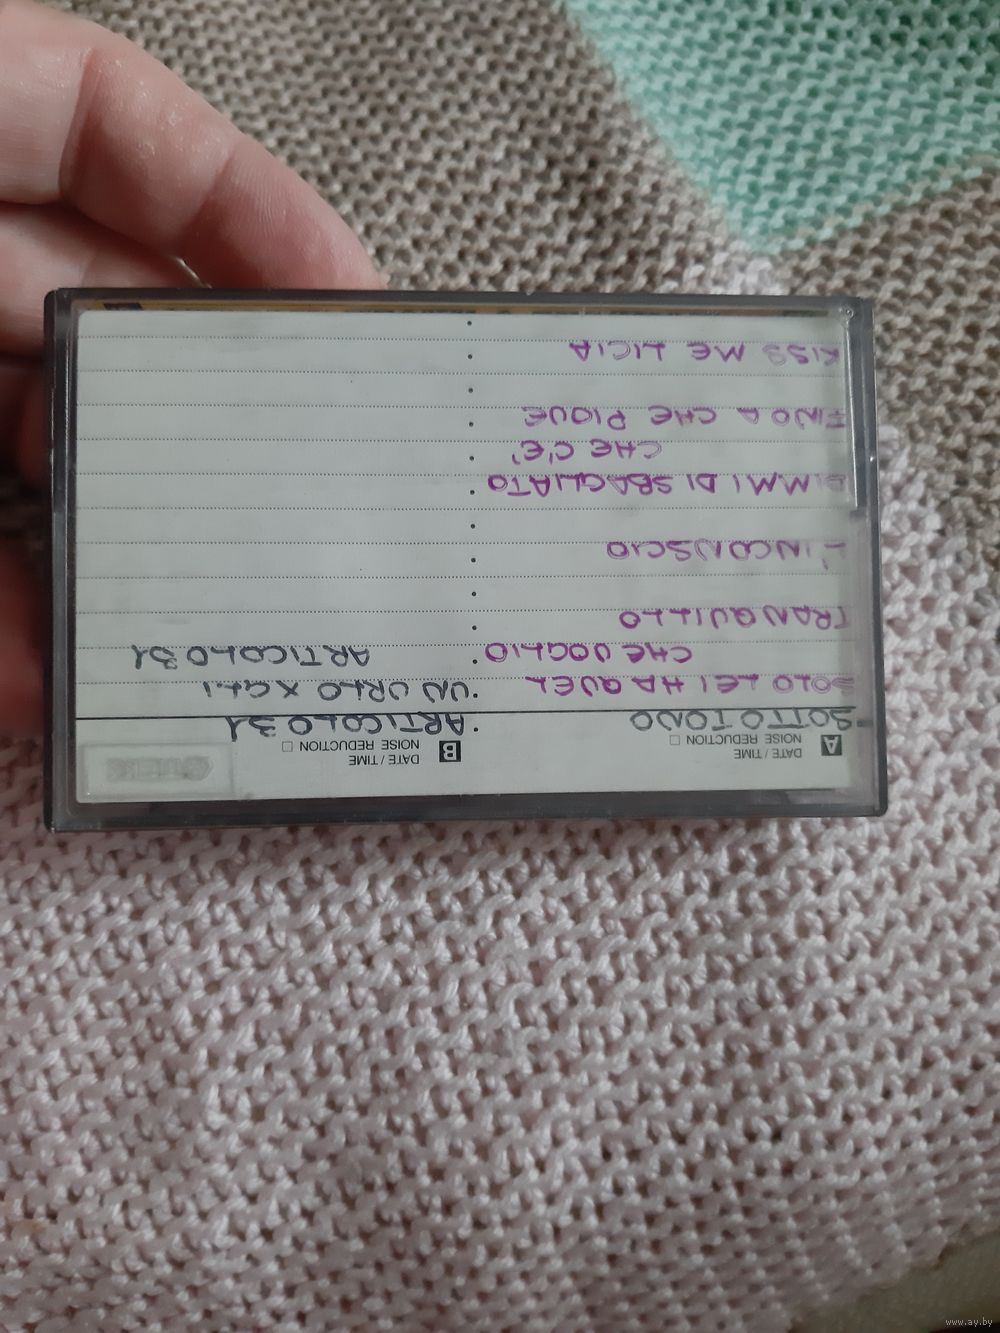 A DATE / TIME
NOISE REDUCTION
B DATE / TIME
NOISE REDUCTION
SOTTO TONO
ARTICOLO 31
SOLO LEI HA QUEL
CHE VOGLIO
UN URLO X GLI
ARTICOLO 31
TRANQUILLO
L'INCONSCIO
DIMMI DI SBAGLIATO
CHE C'E'
FINO A CHE PIOVE
KISS ME LICIA
TDK
www.ay.by